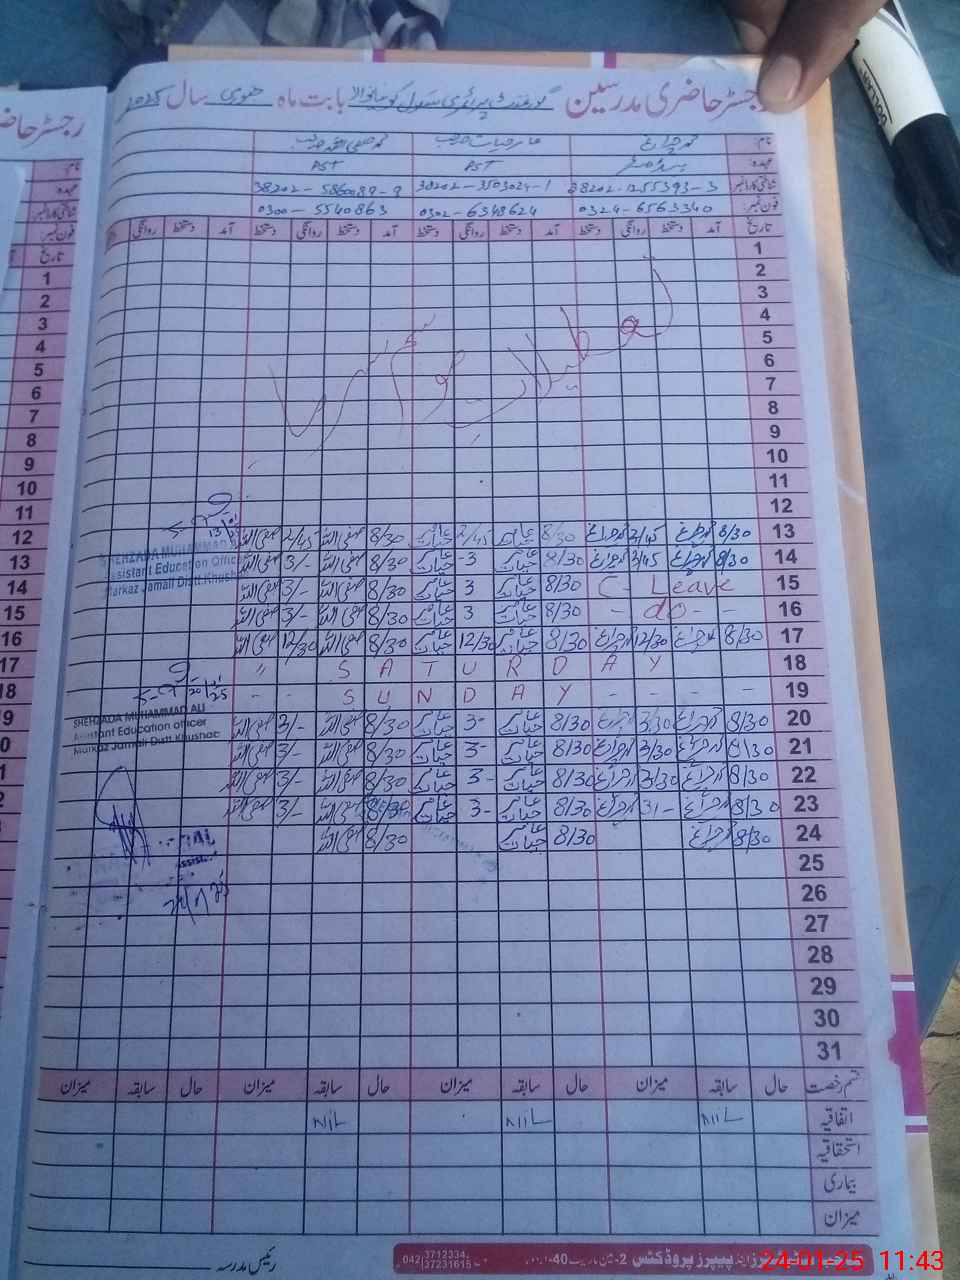 رجسٹر حاضری مدرسین گورنمنٹ پرائمری سکول بابت ماہ جنوری سال 2025
نام محمد چراغ عامر حیات صاحب
عہدہ PST PST
شناختی کارڈ نمبر 38202-1255393-3 38202-3503024-1 38202-5860089-9
فون نمبر 0324-6563340 0302-6348624 0300-5540863
تاریخ آمد دستخط روانگی دستخط آمد دستخط روانگی دستخط آمد دستخط روانگی دستخط آمد دستخط روانگی
1
2
3
4
5
6
7
8
9
10
11
12
تعطیلات موسم سرما
13 8/30 چراغ 2/45 چراغ 8/30 عامر حیات 2/45 عامر حیات 8/30 صفی اللہ 2/45 صفی اللہ
14 8/30 چراغ 2/45 چراغ 8/30 عامر حیات 3- عامر حیات 8/30 صفی اللہ 3/- صفی اللہ
15 C- Leave 8/30 عامر حیات 3 عامر حیات 8/30 صفی اللہ 3/- صفی اللہ
16 - do - - 8/30 عامر حیات 3 عامر حیات 8/30 صفی اللہ 3/- صفی اللہ
17 8/30 چراغ 12/30 چراغ 8/30 عامر حیات 12/30 عامر حیات 8/30 صفی اللہ 12/30 صفی اللہ
18 S A T U R D A Y
19 - - S U N D A Y - - - -
20 8/30 چراغ 3/30 چراغ 8/30 عامر حیات 3- عامر حیات 8/30 صفی اللہ 3/- صفی اللہ
21 8/30 چراغ 3/30 چراغ 8/30 عامر حیات 3- عامر حیات 8/30 صفی اللہ 3/- صفی اللہ
22 8/30 چراغ 3/30 چراغ 8/30 عامر حیات 3- عامر حیات 8/30 صفی اللہ 3/- صفی اللہ
23 8/30 چراغ 3/- چراغ 8/30 عامر حیات 3- عامر حیات 8/30 صفی اللہ 3/- صفی اللہ
24 8/30 چراغ 8/30 عامر حیات 8/30 صفی اللہ
25
26
27
28
29
30
31
SHEHZADA MUHAMMAD
Assistant Education Officer
Markaz Jamali Distt.Khushab
20/01/25
SHEHZADA MUHAMMAD ALI
Assistant Education officer
Markaz Jamali Distt.Khushab
قسم رخصت حال سابقہ میزان حال سابقہ میزان حال سابقہ میزان حال سابقہ میزان
اتفاقیہ NIL NIL NIL
استحقاقیہ
بیماری
میزان
رئیس مدرسہ
پیپرز پروڈکٹس
042 3712334
37231615
رجسٹر حاضری
نام
عہدہ
شناختی کارڈ نمبر
فون نمبر
تاریخ
1
2
3
4
5
6
7
8
9
10
11
12
13
14
15
16
17
18
24-01-25 11:43